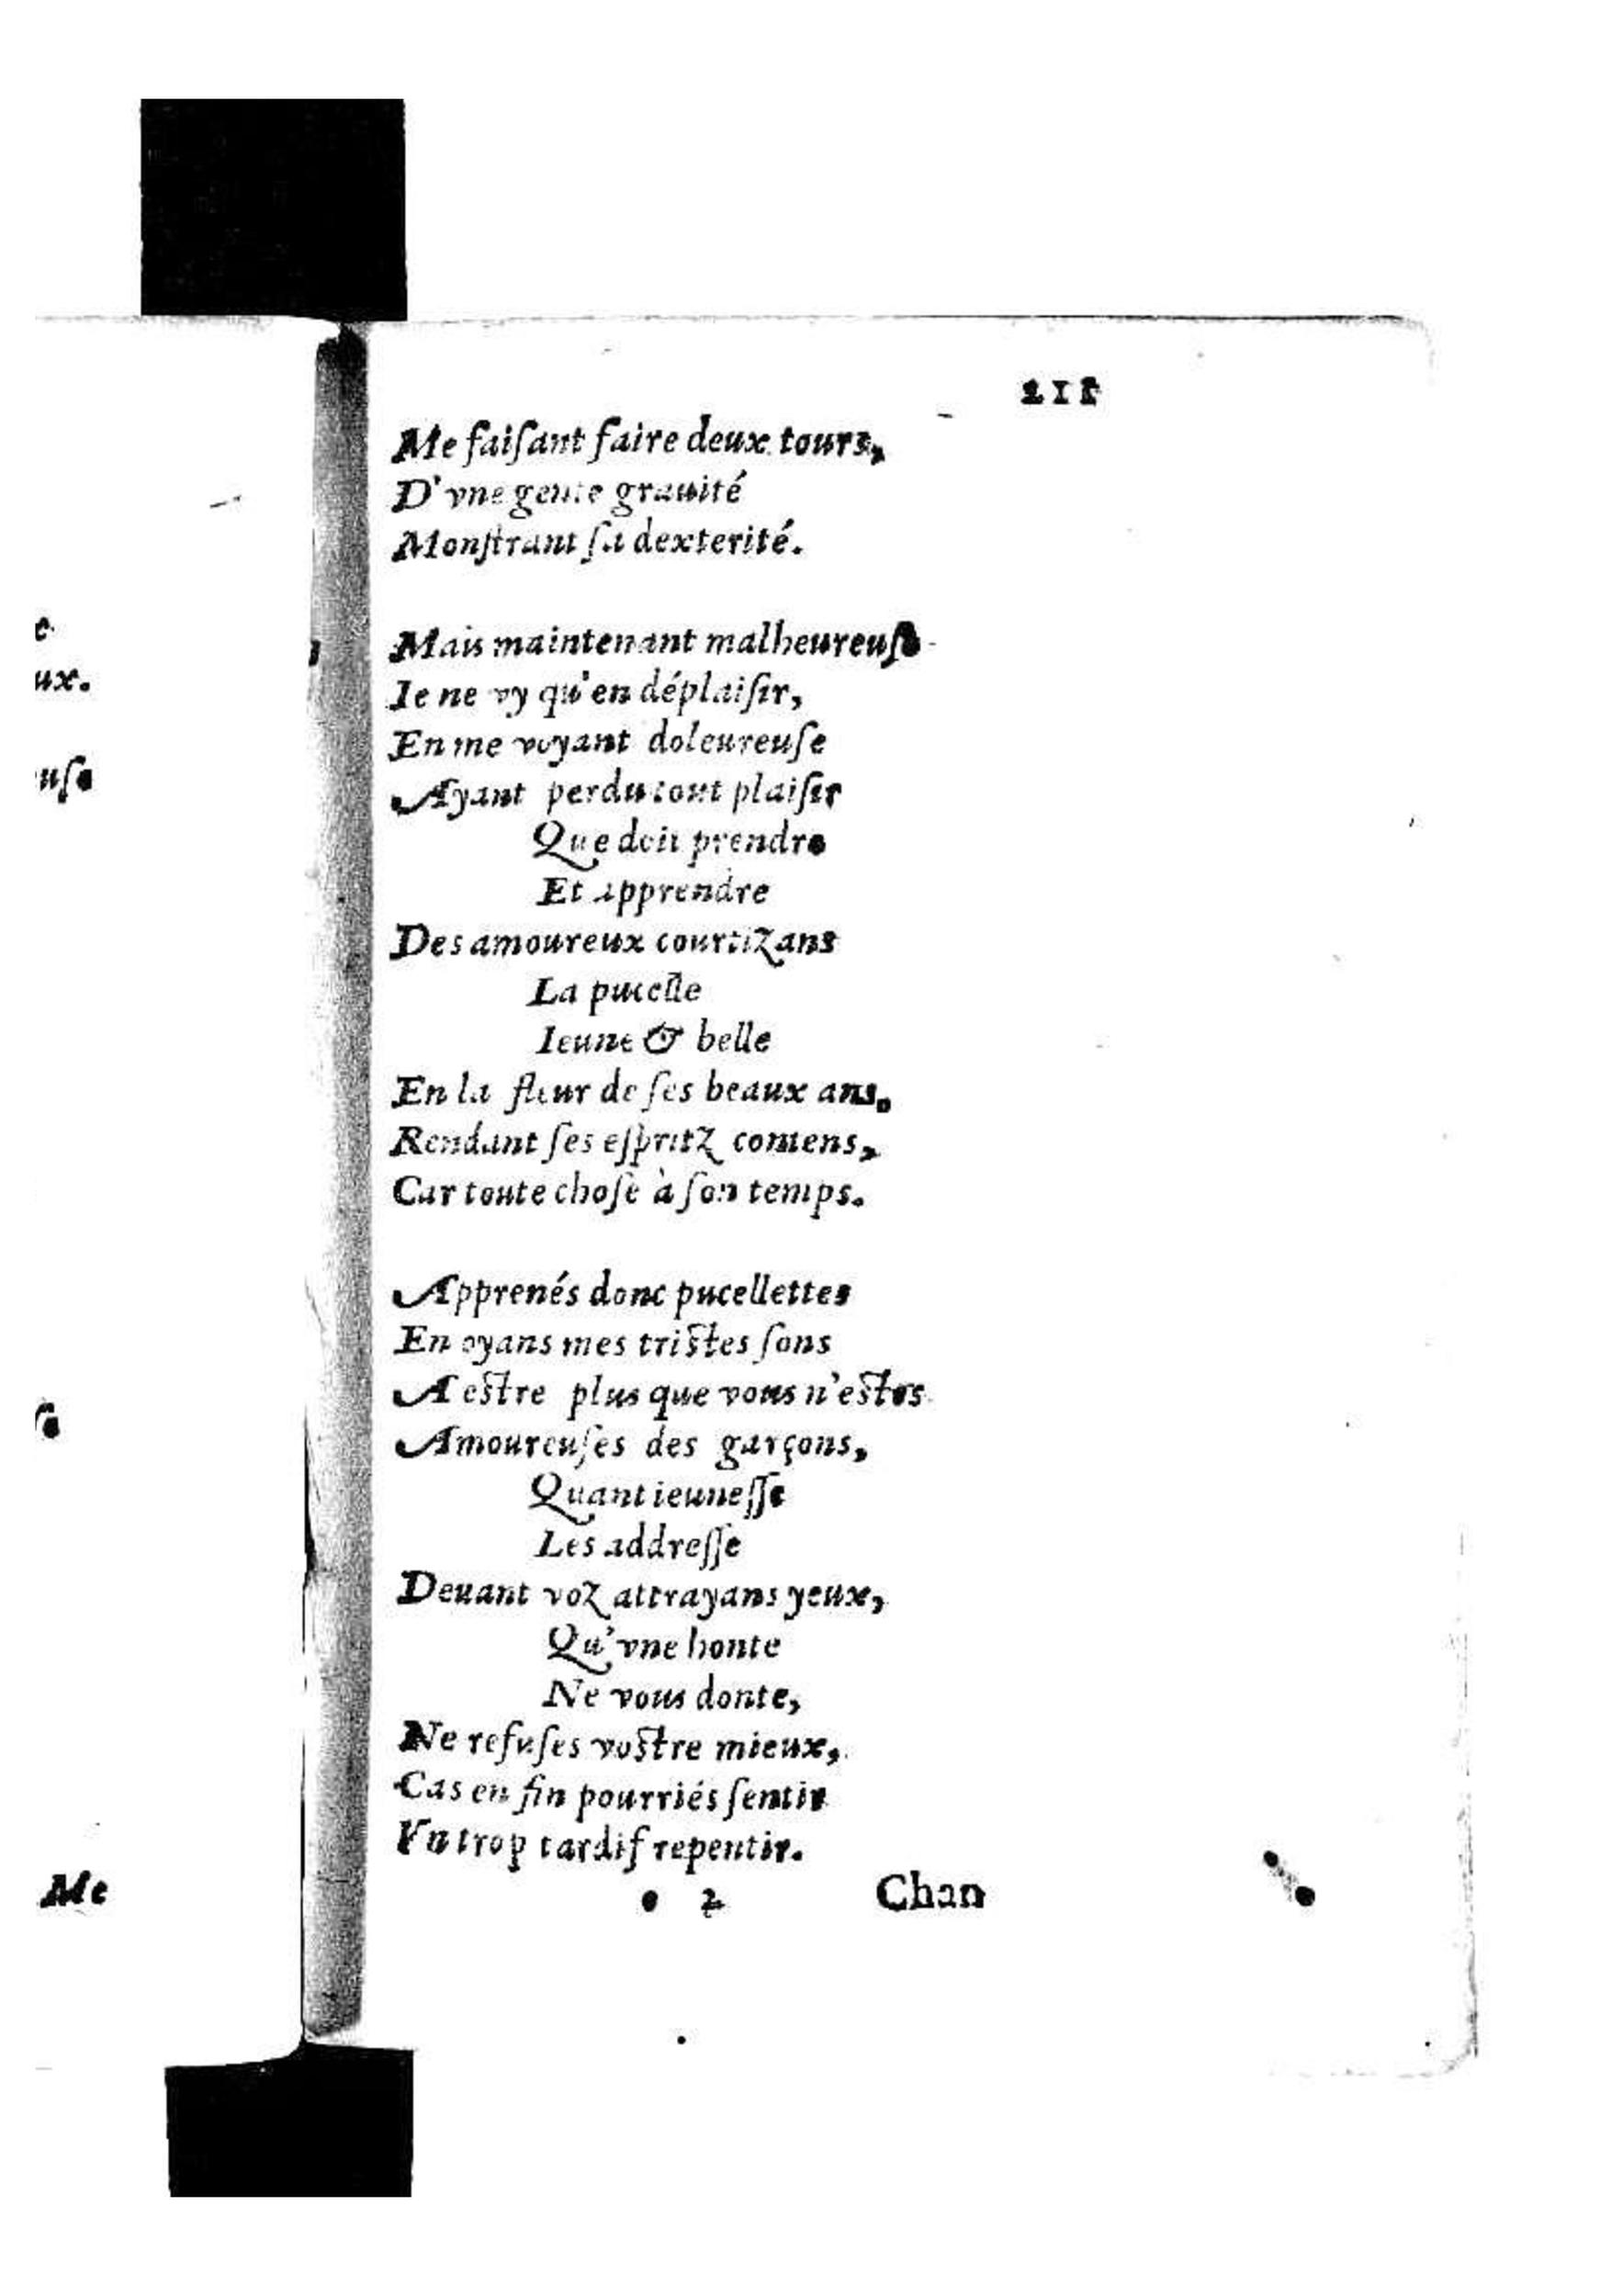 e
ux.
use
Me
Me faiſant faire deux tours,
D'vne gente grauité
Monſtrant ſa dexterité.
Mais maintenant malheureuſe
Ie ne vy qu'en déplaiſir,
En me voyant doleureuſe
Ayant perdu tout plaiſir
Que doit prendre
Et apprendre
Des amoureux courtiZans
La pucelle
Ieune & belle
En la fleur de ſes beaux ans.
Rendant ſes eſpritZ contens,
Car toute choſe à ſon temps.
Apprenés donc pucellettes
En oyans mes triſtes ſons
A eſtre plus que vous n'eſtes
Amoureuſes des garçons,
Quant ieuneſſe
Les addreſſe
Deuant voZ attrayans yeux,
Qu'vne honte
Ne vous donte,
Ne refuſes voſtre mieux,
Cas en fin pourriés ſentir
Vn trop tardif repentir.
2 Chan